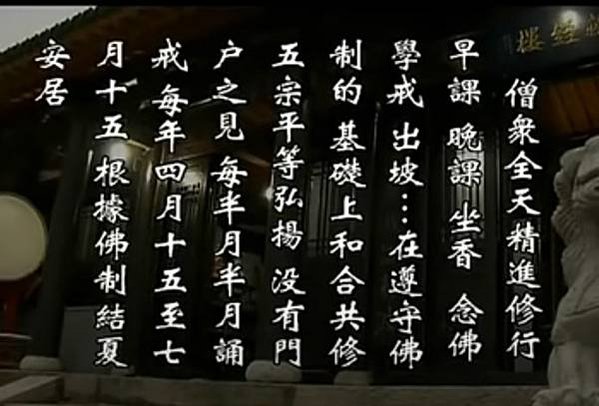 經樓
僧衆全天精進修行
早課 晚課 坐香 念佛
學戒 出坡…在遵守佛
制的 基礎上和合共修
五宗平等弘揚 没有門
户之見 每半月半月誦
戒 每年四月十五至七
月十五 根據佛制結夏
安居